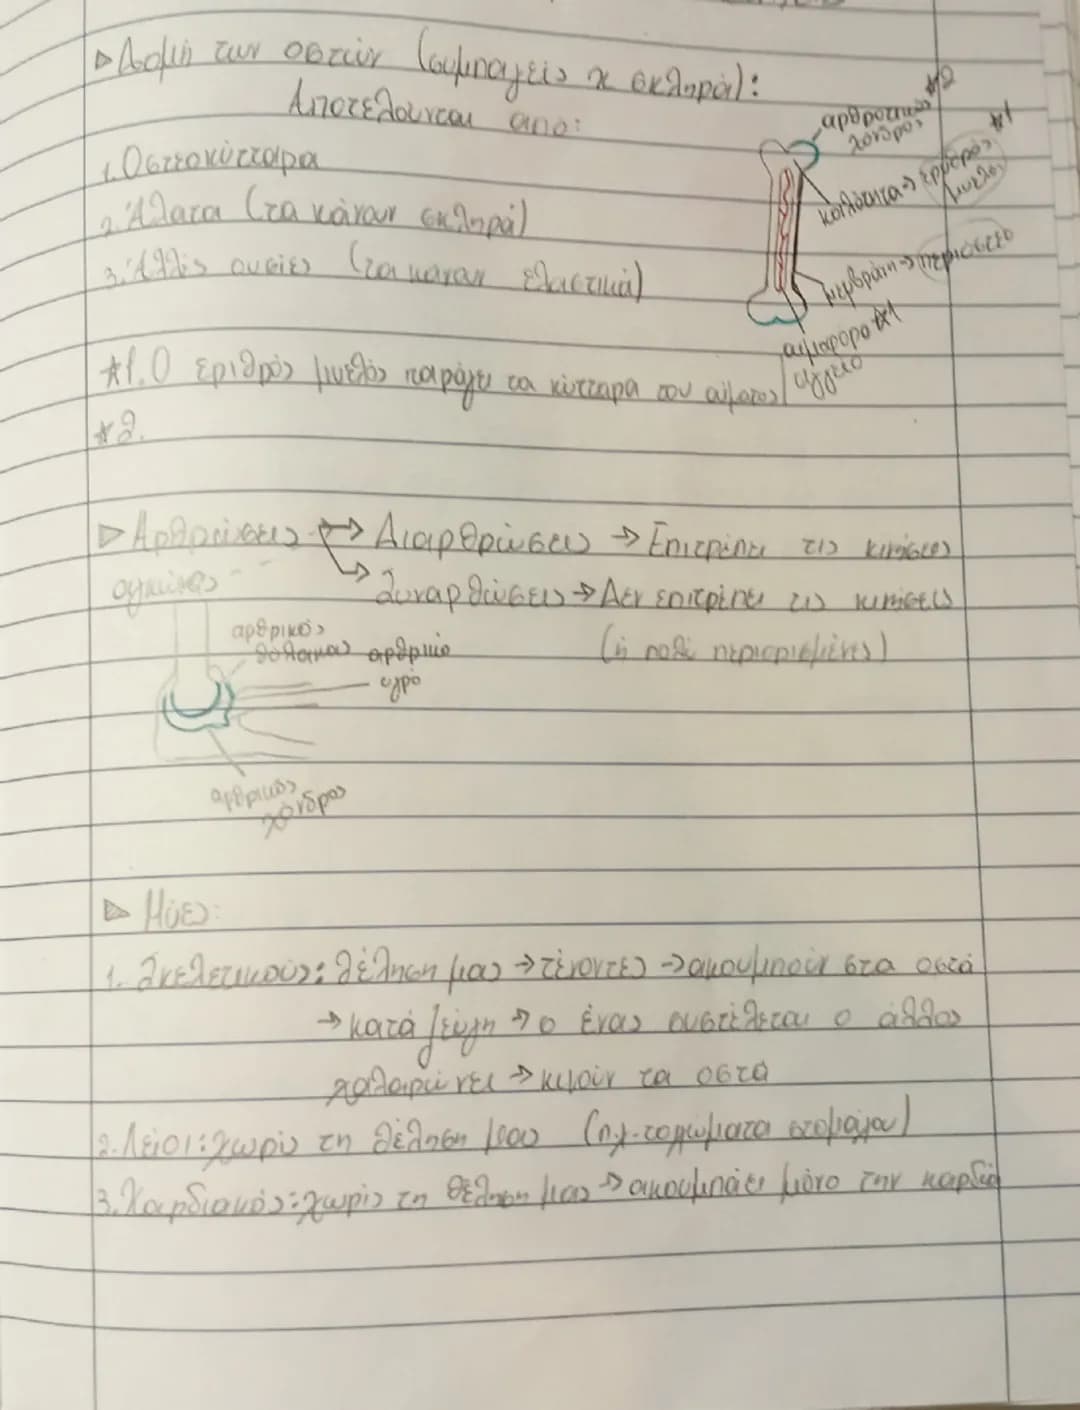 Δομή των οστών (συμπαγείς κ σκληρά):
Αποτελούνται από:
1. Οστεοκύτταρα
2. Άλατα (τα κάνουν σκληρά)
3. Άλλες ουσίες (τα κάναν ελαστικά)
αρθροτικός *2
χόνδρος
κοιλότητα → ερυθρός *1
μυελός
μεμβράνη → περιόστεο
αιμοφόρο *1
αγγείο
*1. Ο εριθρός μυελός παράγει τα κύτταρα του αίματος
*2.
Αρθρώσεις → Διαρθρώσεις → Επιτρέπει τις κινήσεις
→ Συναρθώσεις → Δεν επιτρέπει τις κινήσεις
(ή πολύ περιορισμένες)
αγκώνας
αρθρικός
θύλακας αρθρικό
υγρό
αρθρικός
χόνδρος
Μύες:
1. Σκελετικούς: θέληση μας → τένοντες → ακουμπούν στα οστά
→ κατά ζεύγη → ο ένας συστέλεται ο άλλος
χαλαρώνει → κινούν τα οστά
2. Λείοι: χωρίς τη θέληση μας (π.χ. τοιχώματα στομάχου)
3. Καρδιακός: χωρίς τη θέληση μας → ακουμπάει μόνο την καρδιά